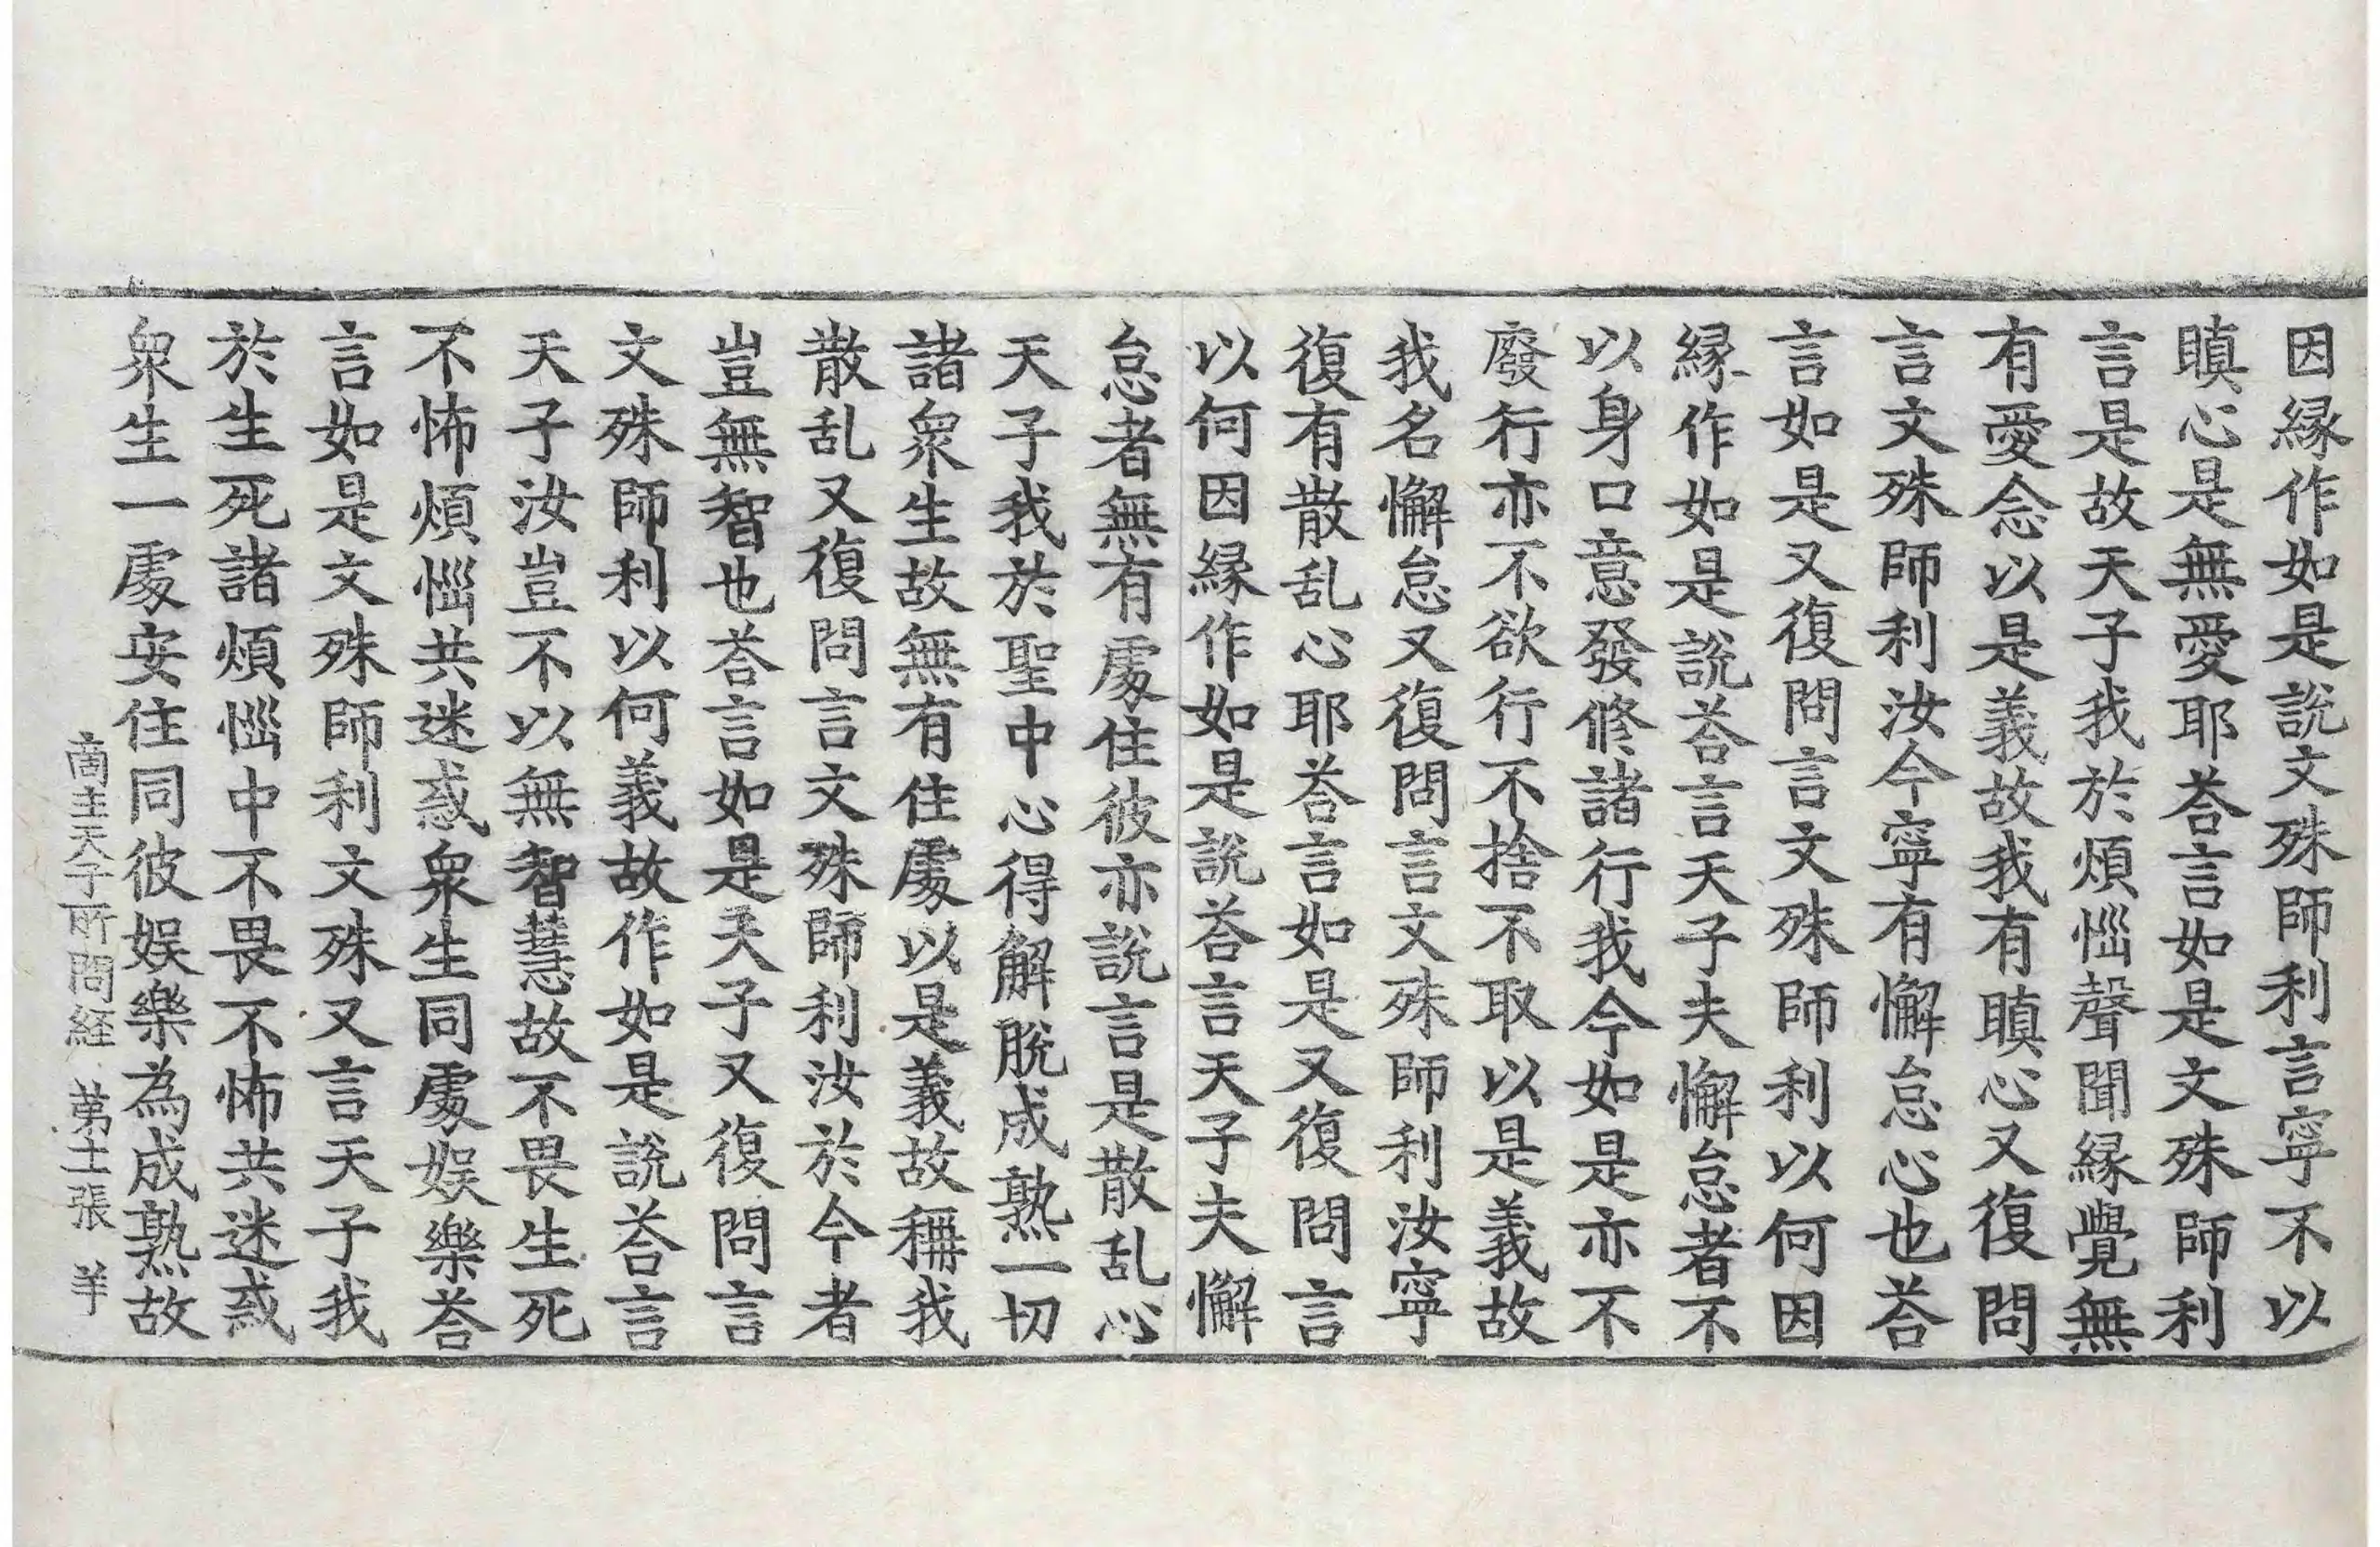 因縁作如是說文殊師利言寧不以
瞋心是無愛耶荅言如是文殊師利
言是故天子我於煩惱聲聞縁覺無
有愛念以是義故我有瞋心又復問
言文殊師利汝今寧有懈怠心也荅
言如是又復問言文殊師利以何因
縁作如是說荅言天子夫懈怠者不
以身口意發修諸行我今如是亦不
廢行亦不欲行不捨不取以是義故
我名懈怠又復問言文殊師利汝寧
復有散乱心耶荅言如是又復問言
以何因縁作如是說荅言天子夫懈
怠者無有處住彼亦說言是散乱心
天子我於聖中心得解脫成熟一切
諸衆生故無有住處以是義故稱我
散乱又復問言文殊師利汝於今者
豈無智也荅言如是天子又復問言
文殊師利以何義故作如是說荅言
天子汝豈不以無智慧故不畏生死
不怖煩惱共迷惑衆生同處娛樂荅
言如是文殊師利文殊又言天子我
於生死諸煩惱中不畏不怖共迷惑
衆生一處安住同彼娛樂為成熟故
商主天子所問経 苐土張 羊